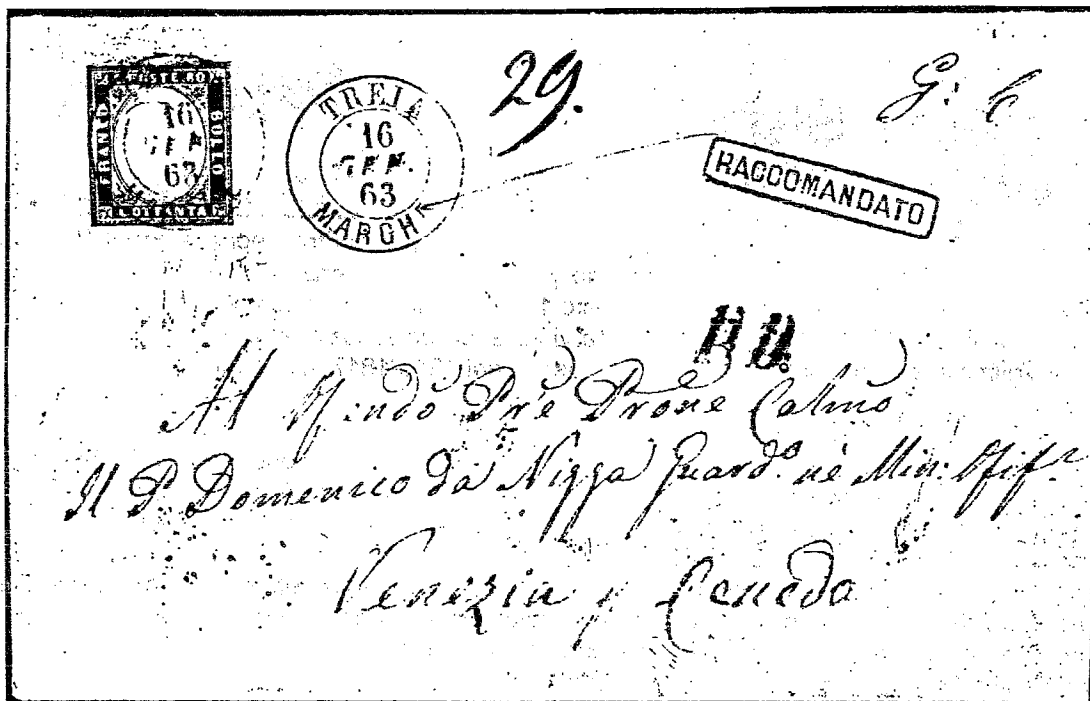 C. POSTE RO
FRANCO
BOLLO
C. OTTANTA
16
GEN
63
TREIA
16
GEN.
63
MARCH
29.
G: C
RACCOMANDATO
Al Pr͠e Prone Calmo
Il P. Domenico da Nizza Guard.º né Min:
Venezia p Ceneda